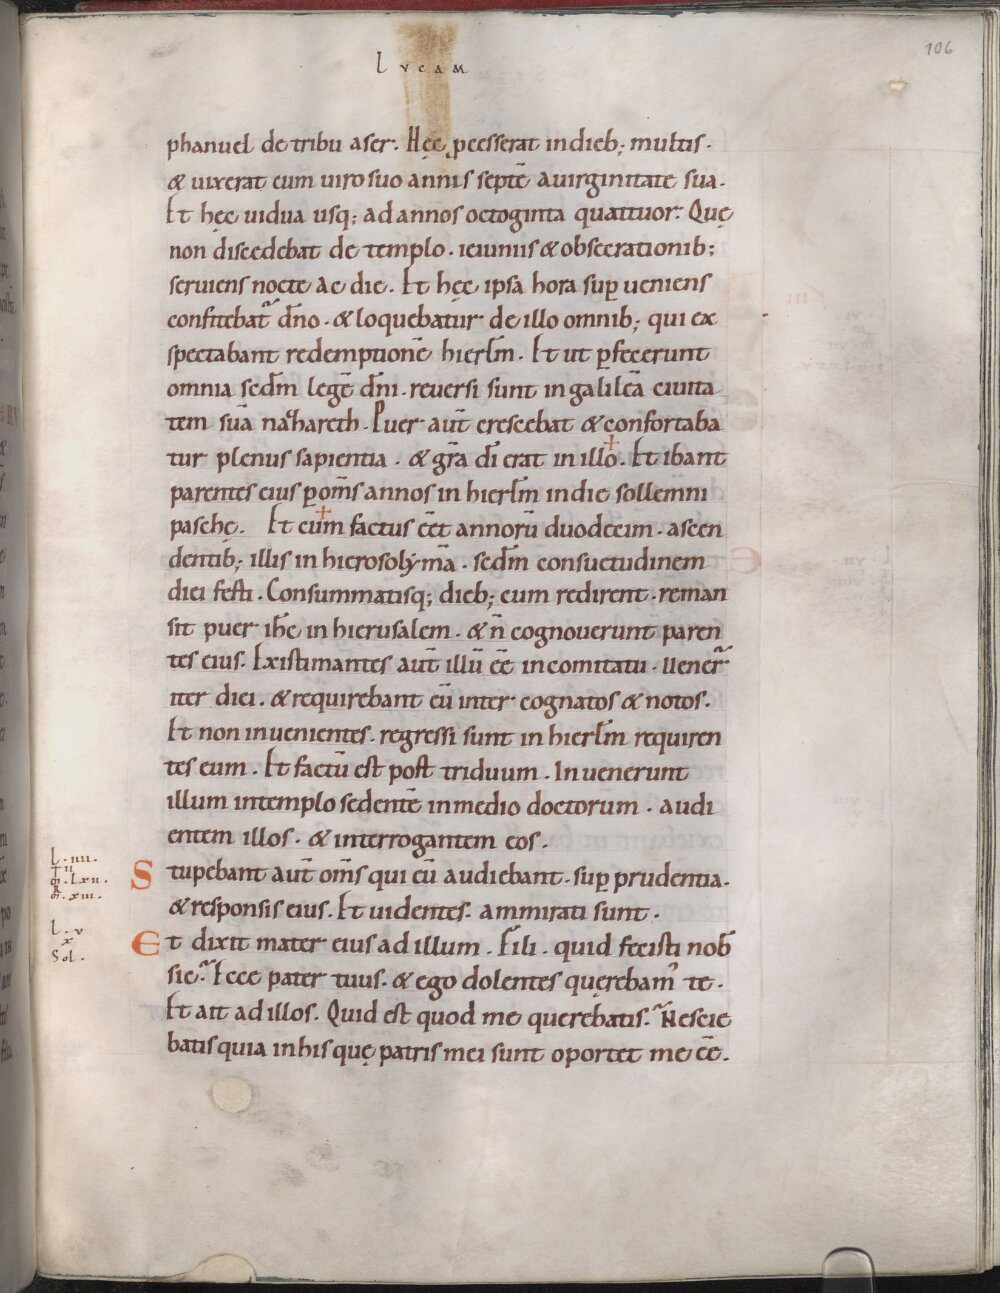 LVCAM
106
phanuel de tribu aser. Hęc p̱cesserat in dieb; multis.
& uixerat cum uiro suo annis septē a uirginitate sua.
Et hęc uidua usq; ad annos octoginta quattuor. Quę
non discedebat de templo. ieiuniis & obsecrationib;
seruiens nocte ac die. Et hęc ipsa hora sup̱ ueniens
confitebat᷑ dño. & loquebatur de illo omnib; qui ex
spectabant redemptionē hierłm. Et ut p̱fecerunt
omnia scđm legē dñi. reuersi sunt in galileā ciuita
tem suā nazareth. Puer aut̄ crescebat & confortaba
tur plenus sapientia. & gr̄a dī erat in illo. Et ibant
parentes eius p̱ om̄s annos in hierłm in die sollemni
paschę. Et cum factus eēt annorū duodecim. ascen
dentib; illis in hierosolymā. scđm consuetudinem
diei festi. Consummatisq; dieb; cum redirent. reman
sit puer ih̄c in hierusalem. & ñ cognouerunt paren
tes eius. Existimantes aut̄ illū eē in comitatu. Uener᷑
iter diei. & requirebant eū inter cognatos & notos.
Et non inuenientes. regressi sunt in hierłm requiren
tes eum. Et factū est post triduum. Inuenerunt
illum in templo sedentē in medio doctorum. audi
entem illos. & interrogantem eos.
L. IIII.
II
M. LXII.
M. XIII.
Stupebant aut̄ om̄s qui eū audiebant. sup̱ prudentia.
& responsis eius. Et uidentes ammirati sunt.
L. V
X
Sol.
Et dixit mater eius ad illum. Fili. quid fecisti nob̄
sic? Ecce pater tuus. & ego dolentes querebam᾿ te.
Et ait ad illos. Quid est quod me querebatis? Nescie
batis quia in his quę patris mei sunt oportet me eē.